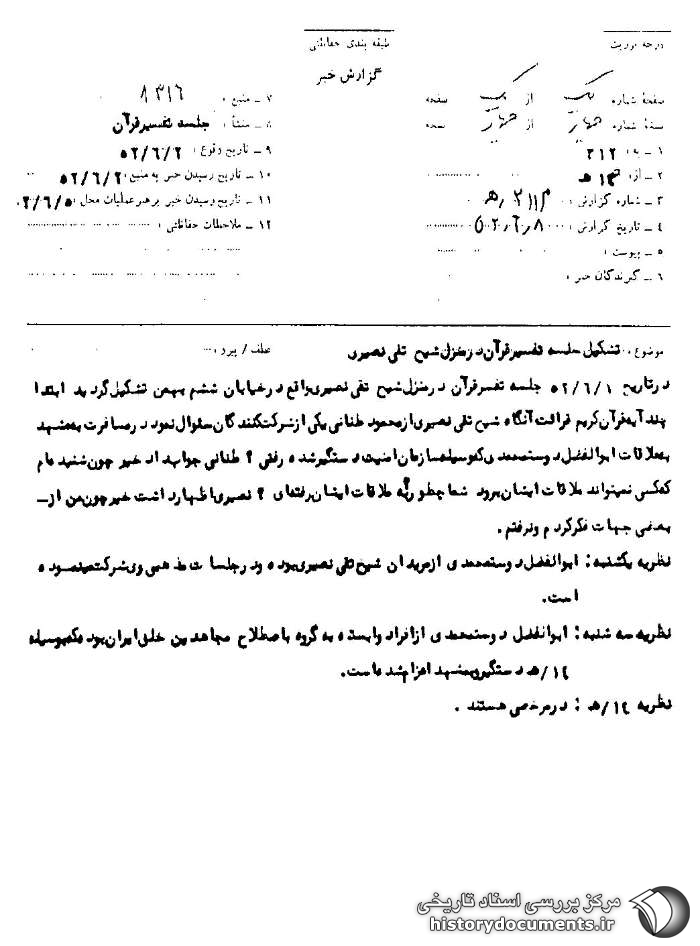 درجه فوریت
طبقه بندی حفاظتی
گزارش خبر
صفحهٔ شماره یک از یک صفحه
نسخهٔ شماره چهار از چهار نسخه
۱ ـ به: ۳۱۲
۲ ـ از: ۱۲ هـ
۳ ـ شماره گزارش:
۴ ـ تاریخ گزارش:
۵ ـ پیوست:
۶ ـ گیرندگان خبر:
۷ ـ منبع: ۸۳۱۶
۸ ـ منشأ: جلسه تفسیر قرآن
۹ ـ تاریخ وقوع: ۵۲/۶/۲
۱۰ ـ تاریخ رسیدن خبر به منبع: ۵۲/۶/۲
۱۱ ـ تاریخ رسیدن خبر برهبر عملیات محل: ۲/۶/۵
۱۲ ـ ملاحظات حفاظتی:
موضوع: تشکیل جلسه تفسیر قرآن در منزل شیخ تقی نصیری
عطف / پیرو:
در تاریخ ۵۲/۶/۱ جلسه تفسیر قرآن در منزل شیخ تقی نصیری واقع در خیابان ششم بهمن تشکیل گردید ابتدا
چند آیه قرآن کریم قرائت آنگاه شیخ تقی نصیری از محمود طغانی یکی از شرکت کنندگان سئوال نمود در مسافرت به مشهد
به ملاقات ابوالفضل دوستمحمدی که وسیله سازمان امنیت دستگیر شده رفتی ؟ طغانی جواب داد خیر چون شنیده ام
که کسی نمیتواند ملاقات ایشان برود شما چطور به ملاقات ایشان رفته ای ؟ نصیری اظهار داشت خیر چون من از ـ
بعضی جهات فکر کردم و نرفتم .
نظریه یکشنبه : ابوالفضل دوستمحمدی از مریدان شیخ تقی نصیری بوده و در جلسات مذهبی وی شرکت مینموده
است.
نظریه سه شنبه : ابوالفضل دوستمحمدی از افراد وابسته به گروه باصطلاح مجاهدین خلق ایران بوده که بوسیله
۱۲/هـ دستگیر و به مشهد اعزام شده است.
نظریه ۱۲/هـ : در مرخصی هستند .
مرکز بررسی اسناد تاریخی
historydocuments.ir